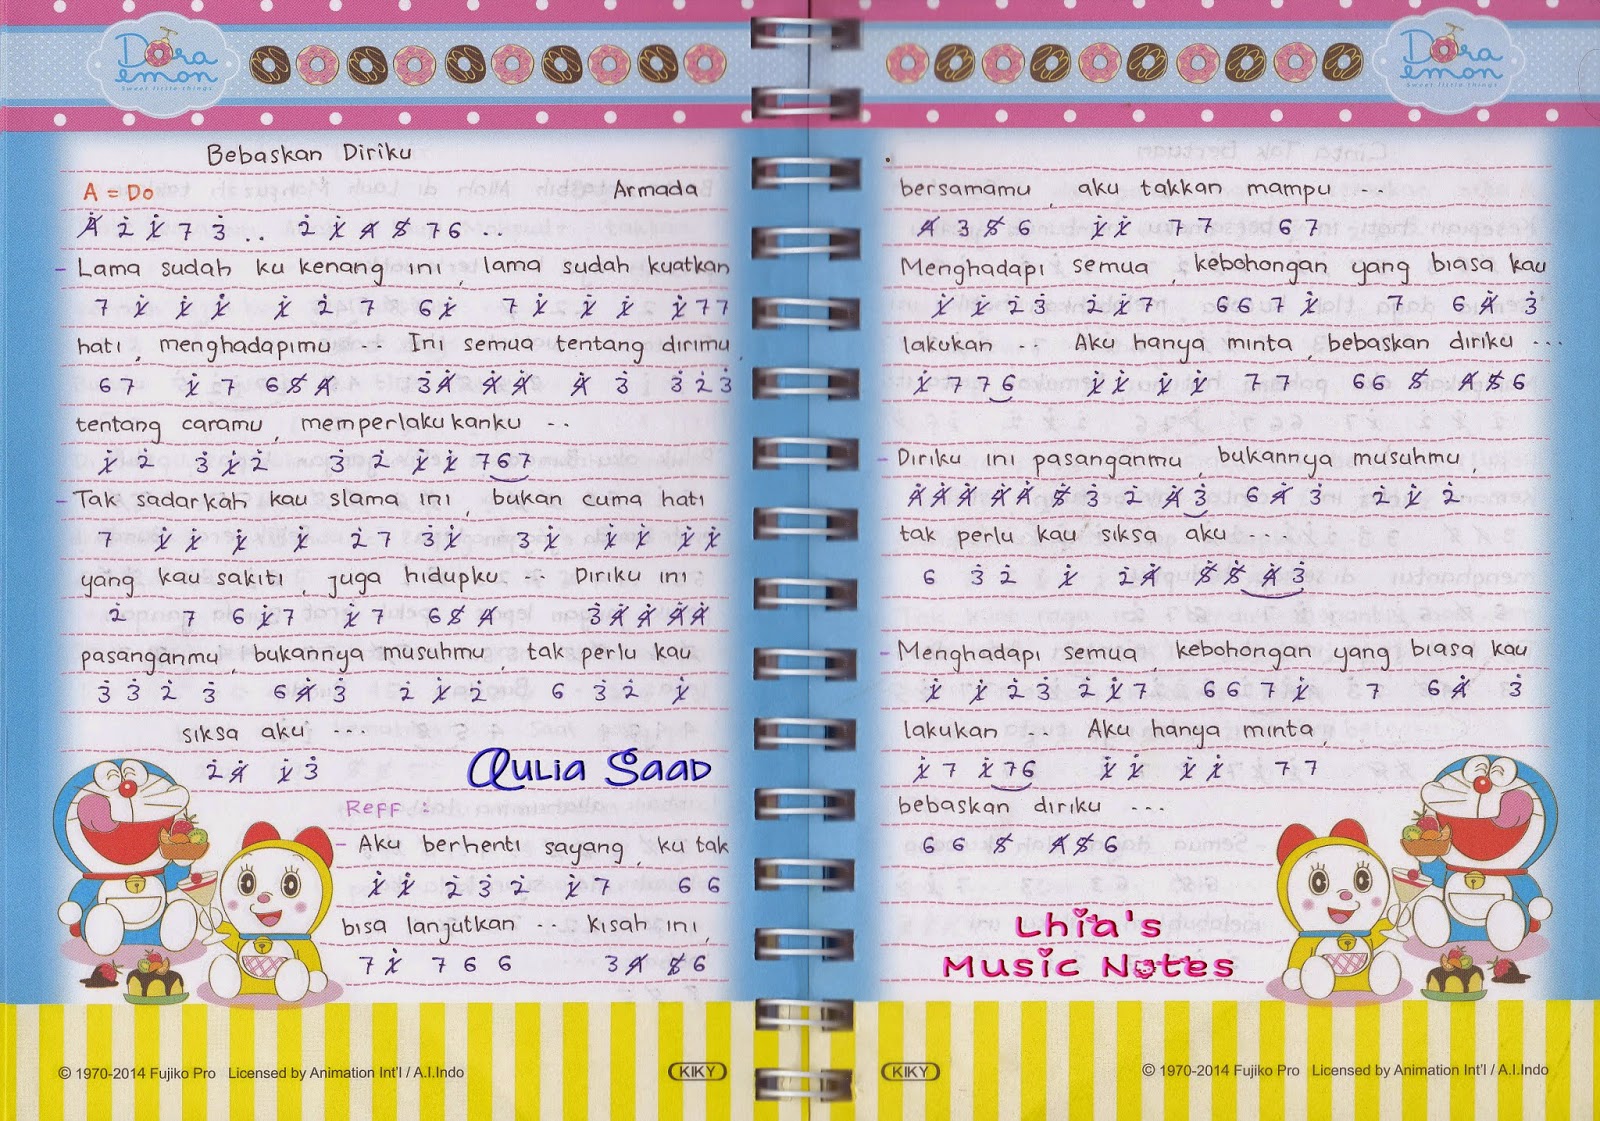 Dora emon
Sweet little things
Bebaskan Diriku
A = Do
Armada
4 2 1 7 3 .. 2 1 4 5 7 6 ..
- Lama sudah ku kenang ini , lama sudah kuatkan
7 1 1 1 1 2 7 6 1 7 1 1 1 1 7 7
hati , menghadapimu -- Ini semua tentang dirimu,
6 7 1 7 6 5 4 3 4 4 4 4 3 3 2 3
tentang caramu , memperlakukanku --
1 2 3 1 2 3 2 1 1 7 6 7
- Tak sadarkah kau slama ini , bukan cuma hati
7 1 1 1 1 2 7 3 1 3 1 1 1 1 1
yang kau sakiti , juga hidupku -- Diriku ini
2 7 6 1 7 1 7 6 5 4 3 4 4 4 4
pasanganmu , bukannya musuhmu , tak perlu kau
3 3 2 3 6 4 3 2 1 2 6 3 2 1
siksa aku ---
2 4 1 3
Aulia Saad
Reff :
- Aku berhenti sayang , ku tak
1 1 2 3 2 1 7 6 6
bisa lanjutkan -- kisah ini,
7 1 7 6 6 3 4 5 6
© 1970-2014 Fujiko Pro Licensed by Animation Int'l / A.I.Indo
KIKY
Dora emon
Sweet little things
bersamamu , aku takkan mampu --
4 3 5 6 1 1 7 7 6 7
Menghadapi semua , kebohongan yang biasa kau
1 1 2 3 2 1 7 6 6 7 1 7 6 4 3
lakukan -- Aku hanya minta , bebaskan diriku ---
1 7 7 6 1 1 1 1 7 7 6 6 5 4 5 6
- Diriku ini pasanganmu , bukannya musuhmu ,
4 4 4 4 4 5 3 2 4 3 6 4 3 2 1 2
tak perlu kau siksa aku ---
6 3 2 1 2 4 5 5 4 3
- Menghadapi semua , kebohongan yang biasa kau
1 1 2 3 2 1 7 6 6 7 1 7 6 4 3
lakukan -- Aku hanya minta,
1 7 1 7 6 1 1 1 1 7 7
bebaskan diriku ---
6 6 5 4 5 6
Lhia's
Music Notes
KIKY
© 1970-2014 Fujiko Pro Licensed by Animation Int'l / A.I.Indo